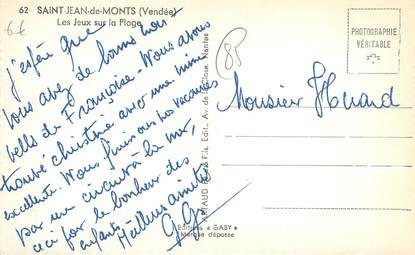 62 SAINT JEAN-de-MONTS (Vendée)
Les Jeux sur la Plage
6€
85
PHOTOGRAPHIE
VÉRITABLE
J'espère que
vous avez de bonnes nou
velles de Françoise. Nous avons
trouvé Christine avec une mine
excellente. Nous finissons nos vacances
par un circuit à la mer,
ici pour le bonheur des
enfants.
Meilleures amitiés
Monsieur Huard
ARTAUD Père & Fils, Edit., Av. de la Close, Nantes
Editions "GABY"
Marque déposée